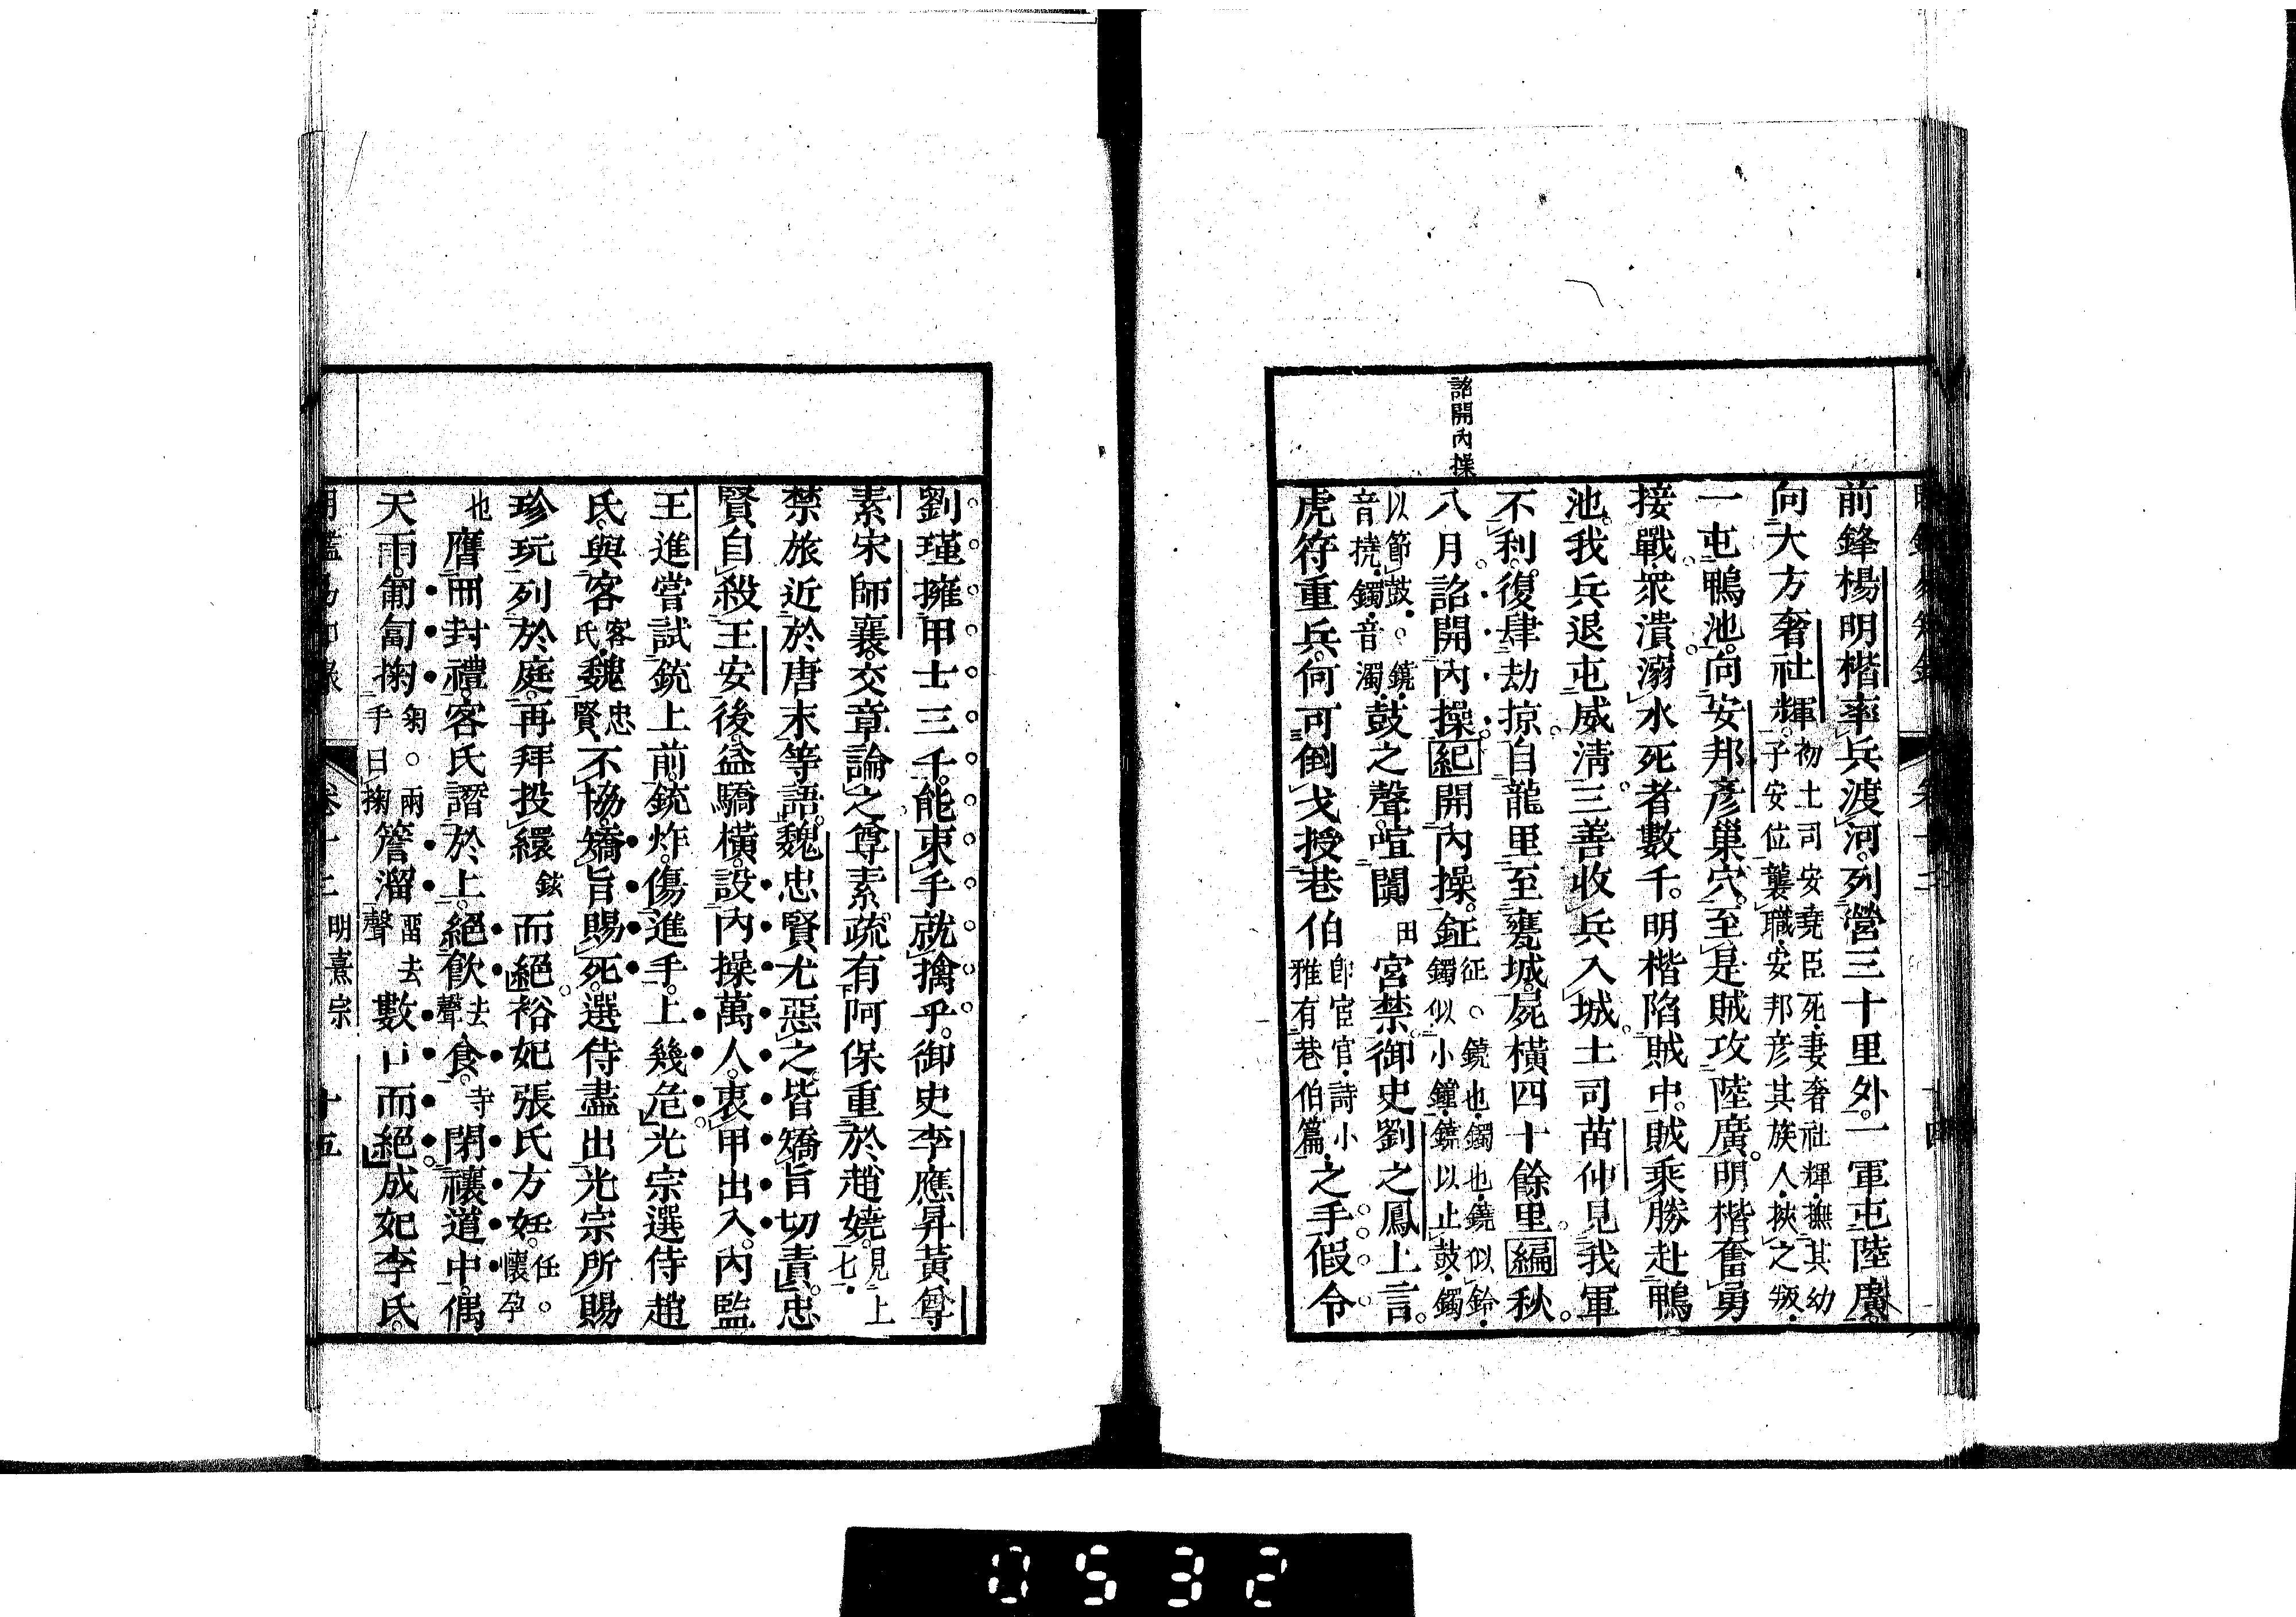 詔開內操
前鋒楊明楷率兵渡河列營三十里外一軍屯陸廣
向大方奢社輝初土司安堯臣死妻奢社輝撫其幼子安位襲職安邦彥其族人挾之叛
一屯鴨池向安邦彥巢穴至是賊攻陸廣明楷奮勇
接戰衆潰溺水死者數千明楷陷賊中賊乘勝赴鴨
池我兵退屯威清三善收兵入城土司苗仲見我軍
不利復肆劫掠自龍里至甕城屍橫四十餘里編秋
八月詔開內操紀開內操鉦征鐃也鐲也鐃似鈴鐲似小鐘鐃以止鼓鐲
以節鼓鐃音撓鐲音濁鼓之聲喧闐田宮禁御史劉之鳳上言
虎符重兵何可倒戈授巷伯卽宦官詩小雅有巷伯篇之手假令
劉瑾擁甲士三千能束手就擒乎御史李應昇黃尊
素宋師襄交章論之尊素疏有阿保重於趙嬈見上七
禁旅近於唐末等語魏忠賢尤惡之皆矯旨切責忠
賢自殺王安後益驕橫設內操萬人衷甲出入內監
王進嘗試銃上前銃炸傷進手上幾危光宗選侍趙
氏與客客氏魏忠賢不協矯旨賜死選侍盡出光宗所賜
珍玩列於庭再拜投繯鉉而絕裕妃張氏方妊任懷孕
也膺冊封禮客氏譖於上絕飮去聲食寺閉禳道中偶
天雨匍匐掬菊兩手曰掬簷溜霤去聲數口而絕成妃李氏
卷十二 明熹宗 十五